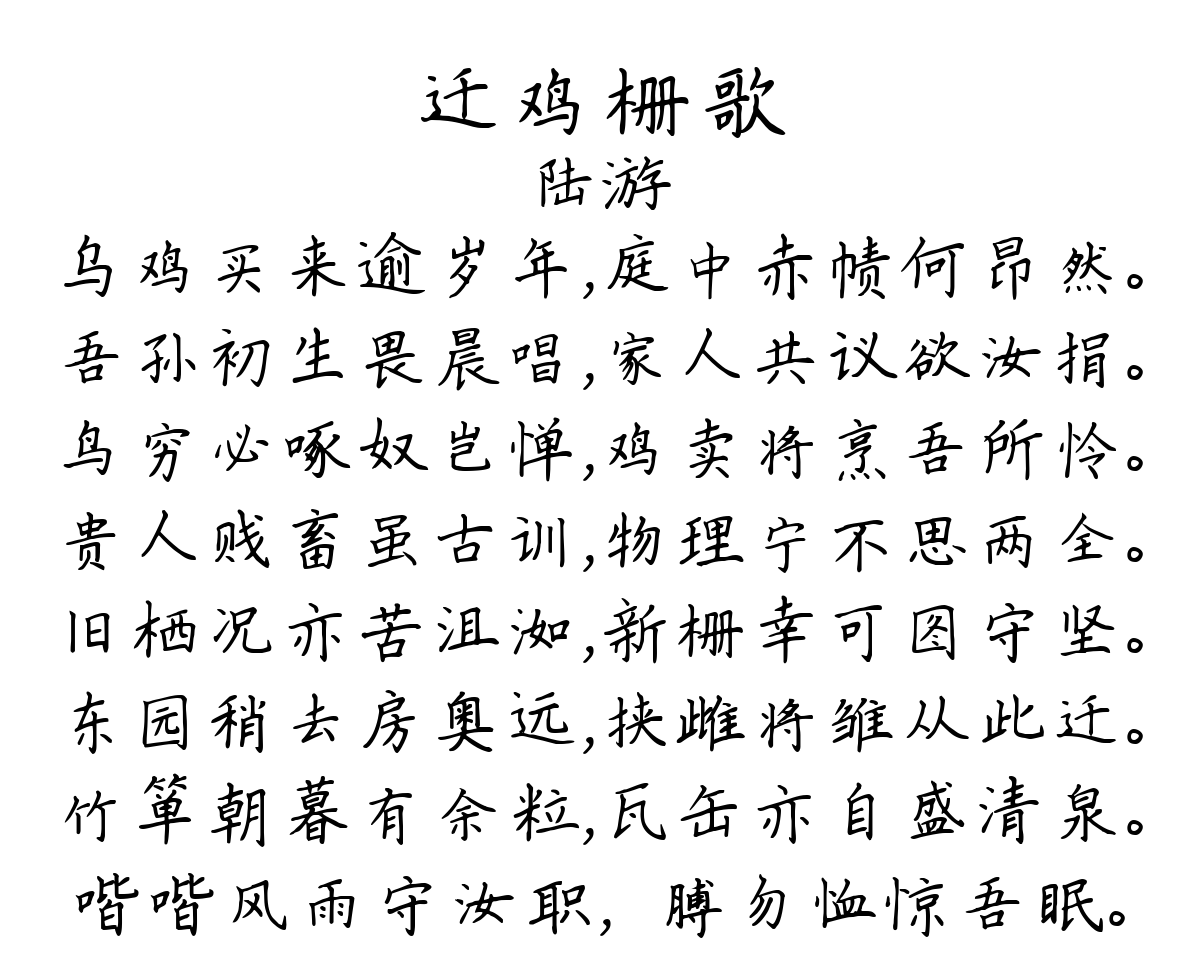 迁鸡栅歌
陆游
乌鸡买来逾岁年,庭中赤帻何昂然。
吾孙初生畏晨唱,家人共议欲汝捐。
鸟穷必啄奴岂惮,鸡卖将烹吾所怜。
贵人贱畜虽古训,物理宁不思两全。
旧栖况亦苦沮洳,新栅幸可图守坚。
东园稍去房奥远,挟雌将雏从此迁。
竹箪朝暮有余粒,瓦缶亦自盛清泉。
喈喈风雨守汝职,膊勿恤惊吾眠。